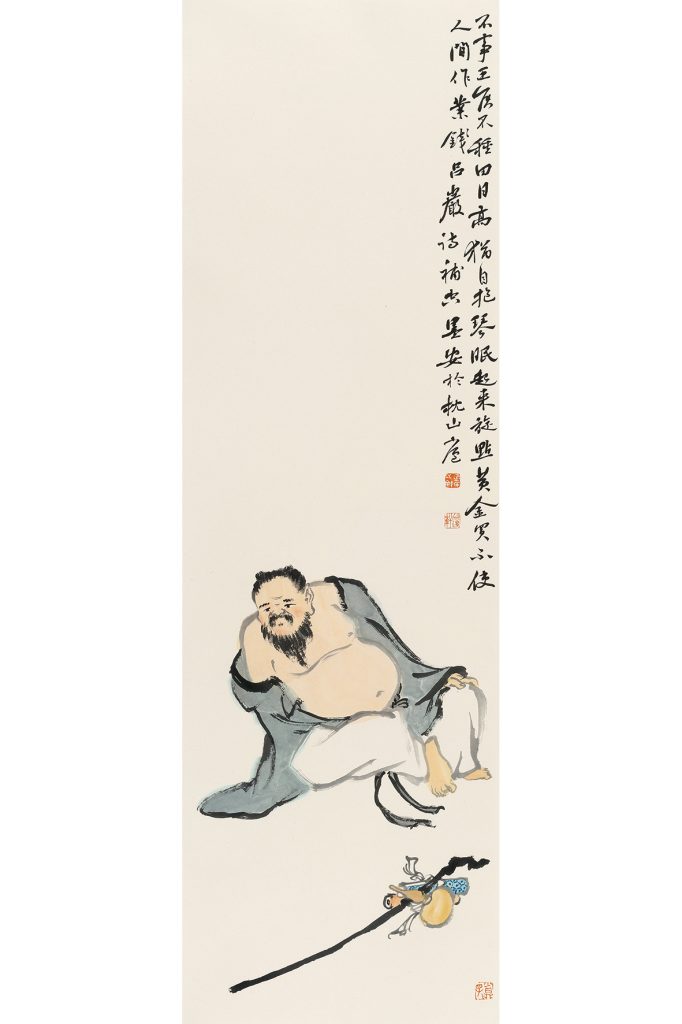 不事王侯不種田日高猶自抱琴眠起来旋點黄金買不使
人間作業錢吕巖詩補空安於枕山廬